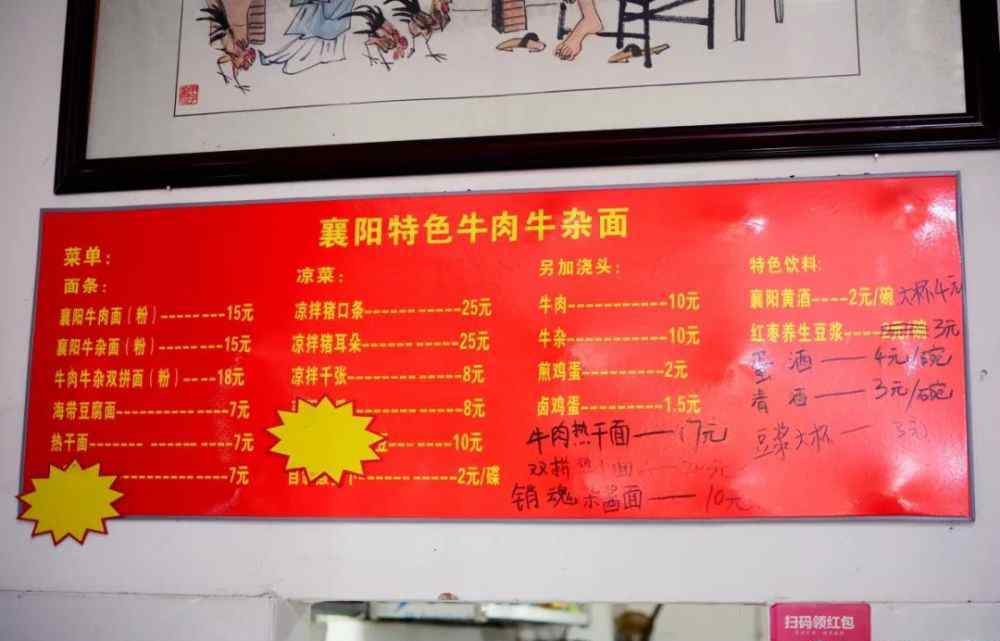 襄阳特色牛肉牛杂面
菜单:
面条:
襄阳牛肉面(粉)--------15元
襄阳牛杂面(粉)--------15元
牛肉牛杂双拼面(粉)----18元
海带豆腐面--------------7元
热干面------ ----------7元
7元
凉菜:
凉拌猪口条------------25元
凉拌猪耳朵------------25元
凉拌千张--------------8元
8元
10元
2元/碟
另加浇头:
牛肉-----------10元
牛杂-----------10元
煎鸡蛋---------2元
卤鸡蛋---------1.5元
牛肉热干面——17元
双拼热干面
销魂杂酱面——10元
特色饮料:
襄阳黄酒----2元/碗 大杯4元
红枣养生豆浆---- 3元
蛋酒——4元/碗
清酒——3元/碗
豆浆大杯— 3元
扫码领红包